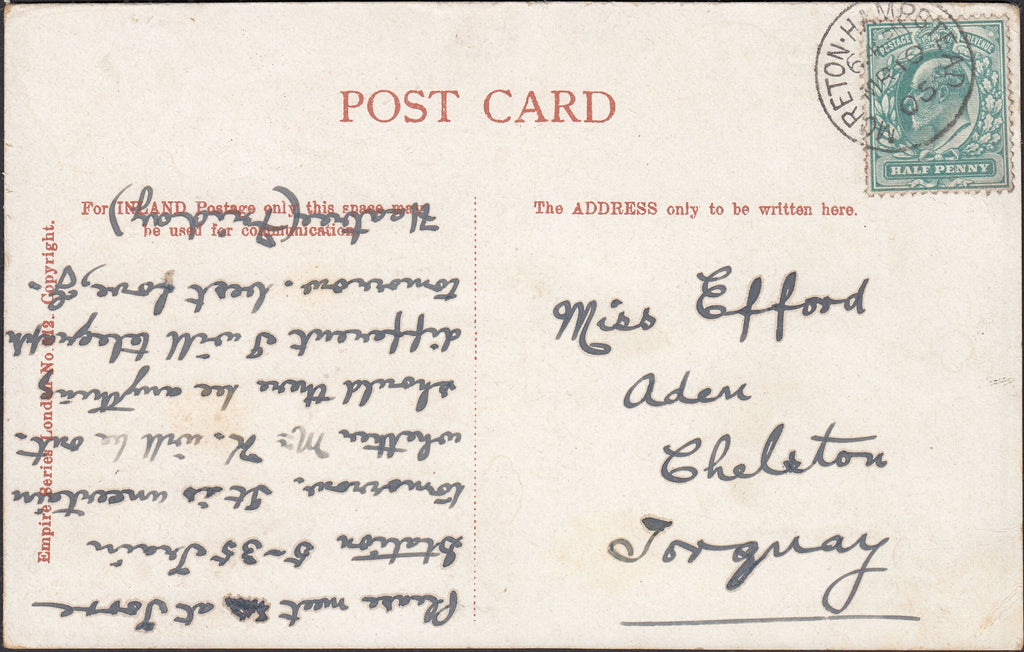 POST CARD
MORETON·HAMPSTEAD
MR 19
05
POSTAGE REVENUE
HALF PENNY
For INLAND Postage only this space may
be used for communication.
The ADDRESS only to be written here.
Empire Series London No. 212. Copyright.
Miss Efford
Aden
Chelston
Torquay
Please meet at Torre
Station 5-35 Train
tomorrow. It is uncertain
whether Mr K. will be out.
should there be anything
different I will telegraph
tomorrow. best love, J.
(Friday)